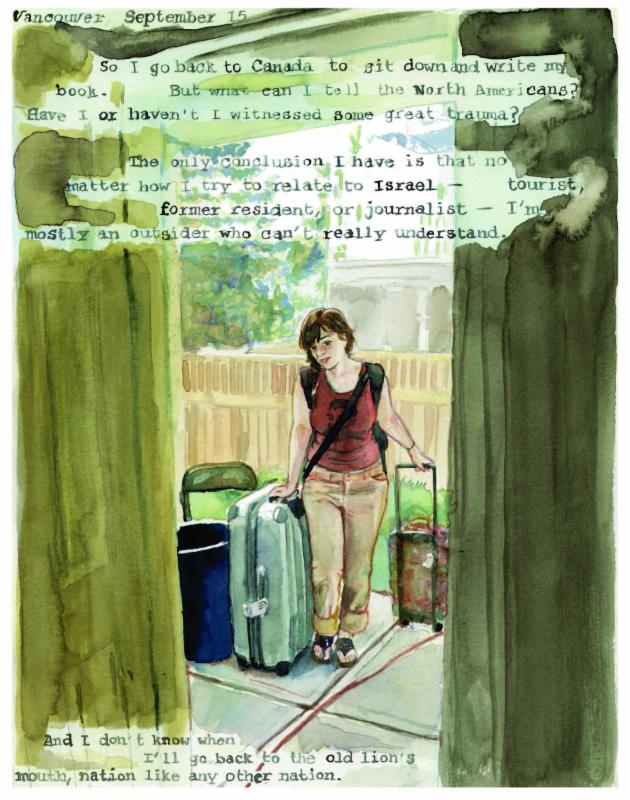 Vancouver September 15
So I go back to Canada to sit down and write my
book. But what can I tell the North Americans?
Have I or haven't I witnessed some great trauma?
The only conclusion I have is that no
matter how I try to relate to Israel — tourist,
former resident, or journalist — I'm
mostly an outsider who can't really understand.
And I don't know when
I'll go back to the old lion's
mouth, nation like any other nation.